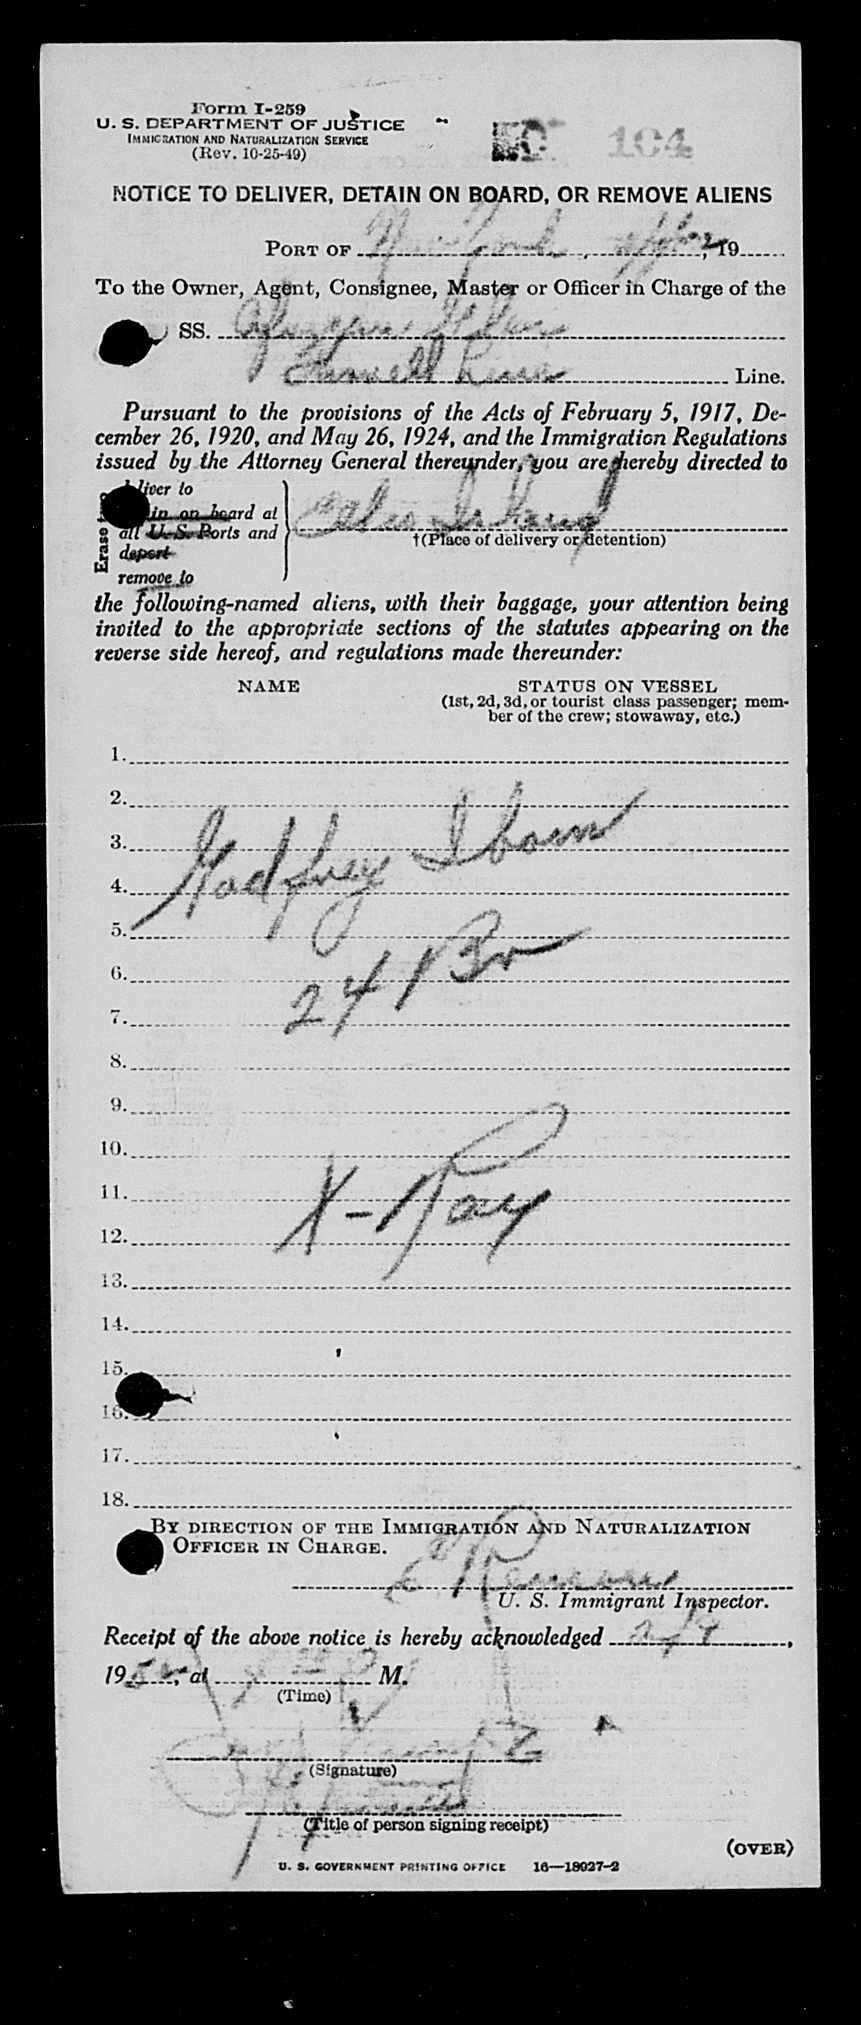 Form I-259
U. S. DEPARTMENT OF JUSTICE
IMMIGRATION AND NATURALIZATION SERVICE
(Rev. 10-25-49)
104
NOTICE TO DELIVER, DETAIN ON BOARD, OR REMOVE ALIENS
PORT OF New York, 19
To the Owner, Agent, Consignee, Master or Officer in Charge of the
SS.
Farrell Line Line.
Pursuant to the provisions of the Acts of February 5, 1917, De-
cember 26, 1920, and May 26, 1924, and the Immigration Regulations
issued by the Attorney General thereunder, you are hereby directed to
Erase
liver to
in on board at
all U. S. Ports and
deport
remove to
Ellis Island
†(Place of delivery or detention)
the following-named aliens, with their baggage, your attention being
invited to the appropriate sections of the statutes appearing on the
reverse side hereof, and regulations made thereunder:
NAME STATUS ON VESSEL
(1st, 2d, 3d, or tourist class passenger; mem-
ber of the crew; stowaway, etc.)
1.
2.
3. Godfrey Ibom
4.
5.
6. 24 Br
7.
8.
9.
10.
11. X-Ray
12.
13.
14.
15.
16.
17.
18.
BY DIRECTION OF THE IMMIGRATION AND NATURALIZATION
OFFICER IN CHARGE.
U. S. Immigrant Inspector.
Receipt of the above notice is hereby acknowledged 2/9,
1952, at M.
(Time)
(Signature)
(Title of person signing receipt)
(OVER)
U. S. GOVERNMENT PRINTING OFFICE 16—18927-2